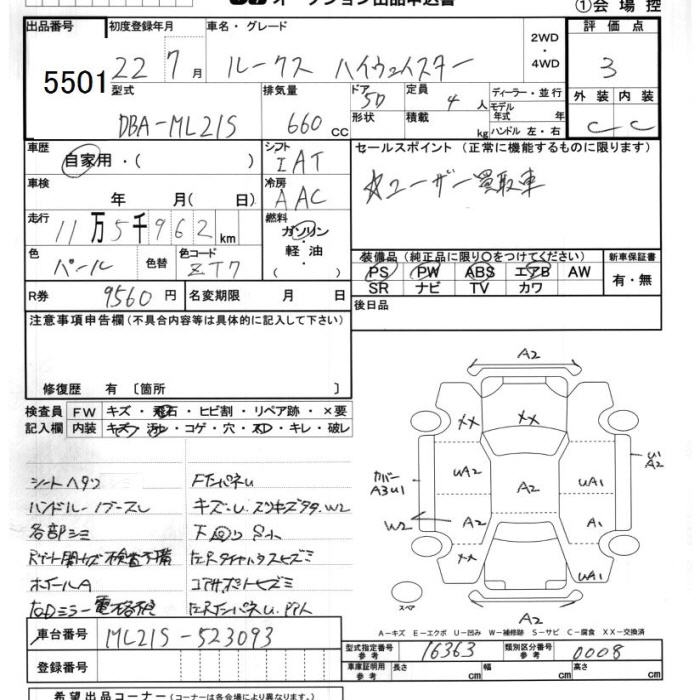 オークション出品申込書
①会場控
出品番号 初度登録年月 車名・グレード 2WD・4WD 評価点
5501 22 7月 ルークス ハイウェイスター 3
型式 排気量 ドア 定員 ディーラー・並行 外装 内装
DBA-ML21S 660cc 5D 4人 モデル年式 年 C C
形状 積載 kg ハンドル 左・右
車歴 シフト セールスポイント (正常に機能するものに限ります)
自家用・( ) IAT ☆ユーザー買取車
車検 年 月( 日) 冷房 AAC
走行 11万5千962km 燃料 ガソリン・軽油・( )
色 パール 色替 色コード ZT7
装備品 (純正品に限り○をつけてください) 新車保証書
PS PW ABS エアB AW 有・無
SR ナビ TV カワ
R券 9560円 名変期限 月 日 後日品
注意事項申告欄(不具合内容等は具体的に記入して下さい)
修復歴 有 〔箇所 〕
検査員 FW キズ・飛石・ヒビ割・リペア跡・×要
記入欄 内装 キズ・汚れ・コゲ・穴・スレ・キレ・破レ
シートヘタリ FTパネU
各部シミ 下回りサビ
ホイールA
A2
XX XX
UA2 A2 UA1
カバーA3U1
A2
W2 A2 A1
XX
UA1
スペア
A2
A-キズ E-エクボ U-凹み W-補修跡 S-サビ C-腐食 XX-交換済
車台番号 ML21S-523093
型式指定番号 参考 16363 類別区分番号 参考 0008
登録番号 車庫証明用 参考 長さ cm 幅 cm 高さ cm
希望出品コーナー(コーナーは各会場により異なります)